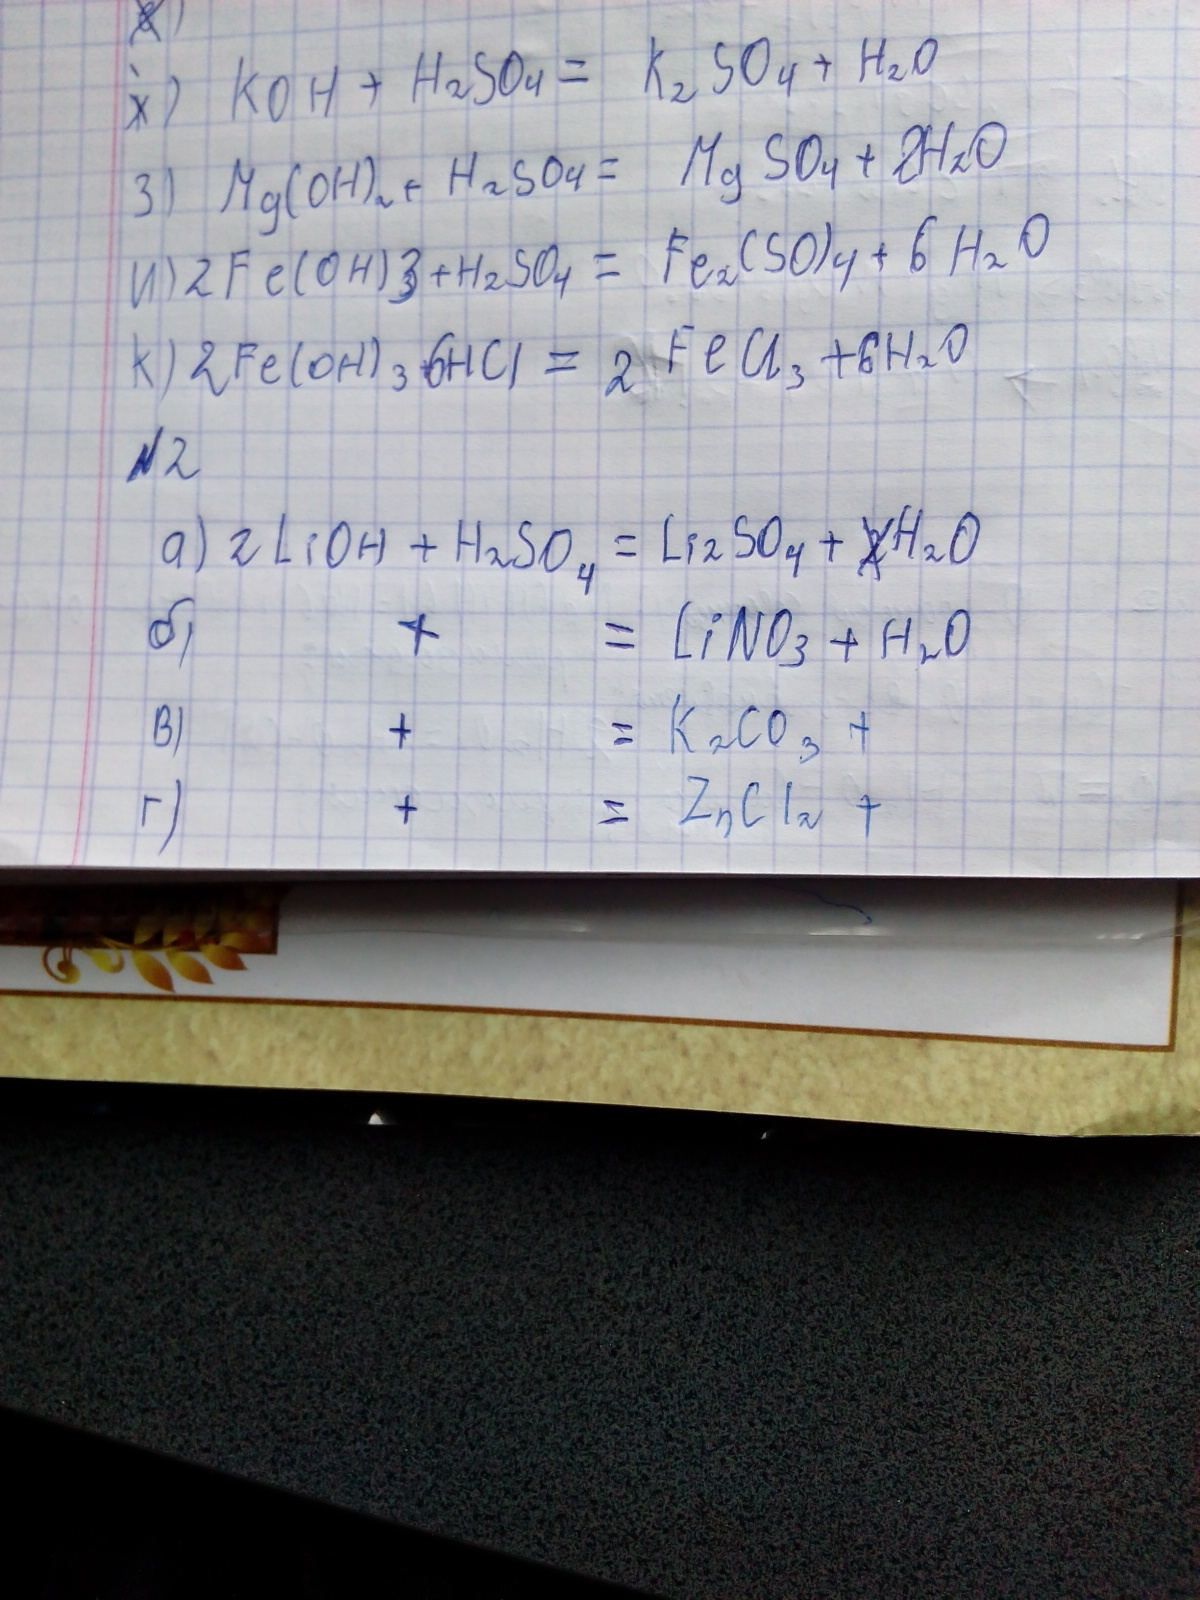 ж) KOH + H₂SO₄ = K₂SO₄ + H₂O
з) Mg(OH)₂ + H₂SO₄ = MgSO₄ + 2H₂O
и) 2Fe(OH)3 + H₂SO₄ = Fe₂(SO)₄ + 6H₂O
к) 2Fe(OH)₃ + 6HCl = 2FeCl₃ + 6H₂O
№2
а) 2LiOH + H₂SO₄ = Li₂SO₄ + H₂O
б) + = LiNO₃ + H₂O
в) + = K₂CO₃ +
г) + = ZnCl₂ +